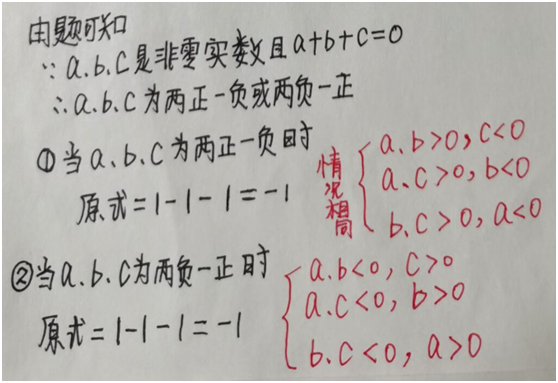 由题可知
∵ a.b.c是非零实数且a+b+c=0
∴ a.b.c为两正一负或两负一正
①当a.b.c为两正一负时
原式=1-1-1=-1
情况相同
a.b>0,c<0
a.c>0,b<0
b.c>0,a<0
②当a.b.c为两负一正时
原式=1-1-1=-1
a.b<0,c>0
a.c<0,b>0
b.c<0,a>0